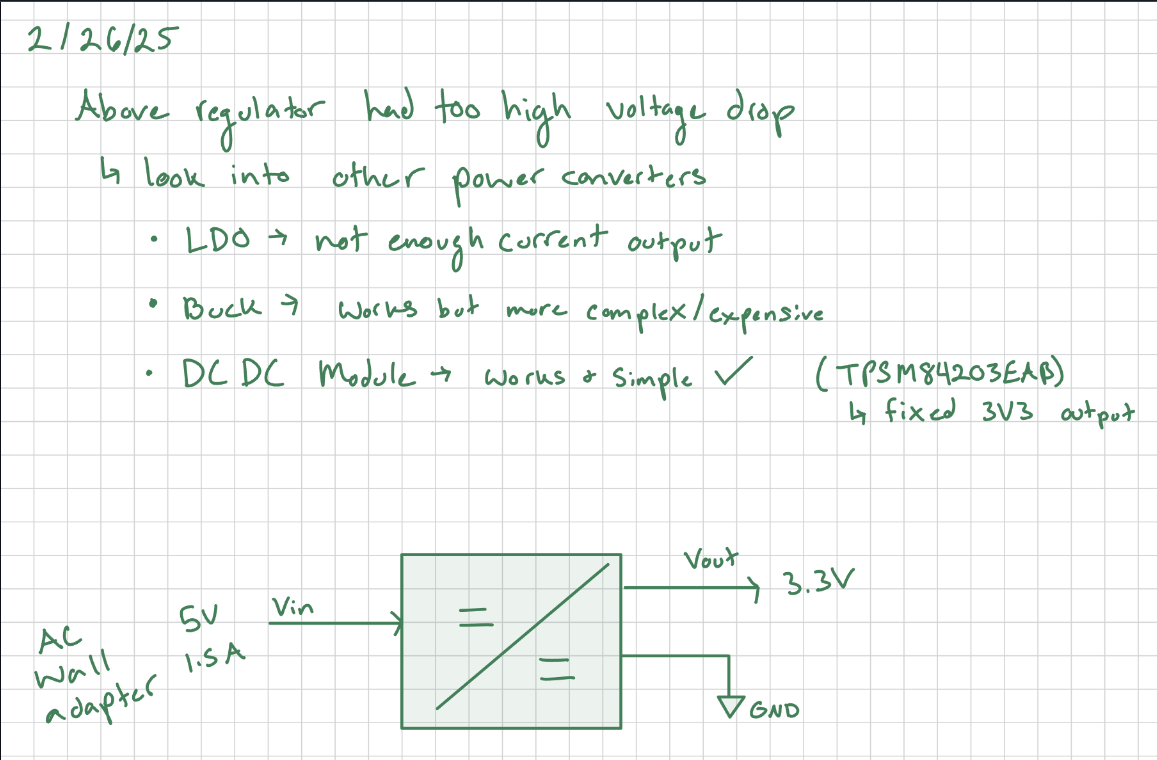 2/26/25
Above regulator had too high voltage drop
↳ look into other power converters
• LDO → not enough current output
• Buck → works but more complex/expensive
• DCDC Module → works & simple ✓ (TPSM84203EAB)
↳ fixed 3V3 output
AC
wall
adapter
5V
1.5A
Vin
Vout
3.3V
GND